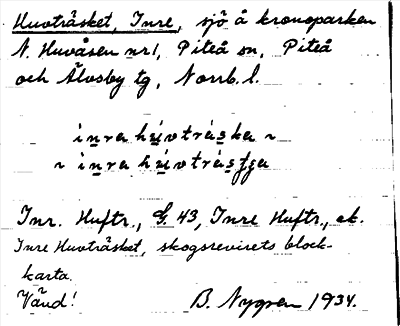 Huvträsket, Inre, sjö å kronoparken
N. Huvåsen nr1, Piteå sn, Piteå
och Älvsby tg, Norrb. l.
inra húvtráska ~
~ inra húvtrásʃga
Inr. Huftr., G. 43, Inre Huftr., ek.
Inre Huvträsket, skogsrevirets block-
karta.
Vänd! B. Nygren 1934.